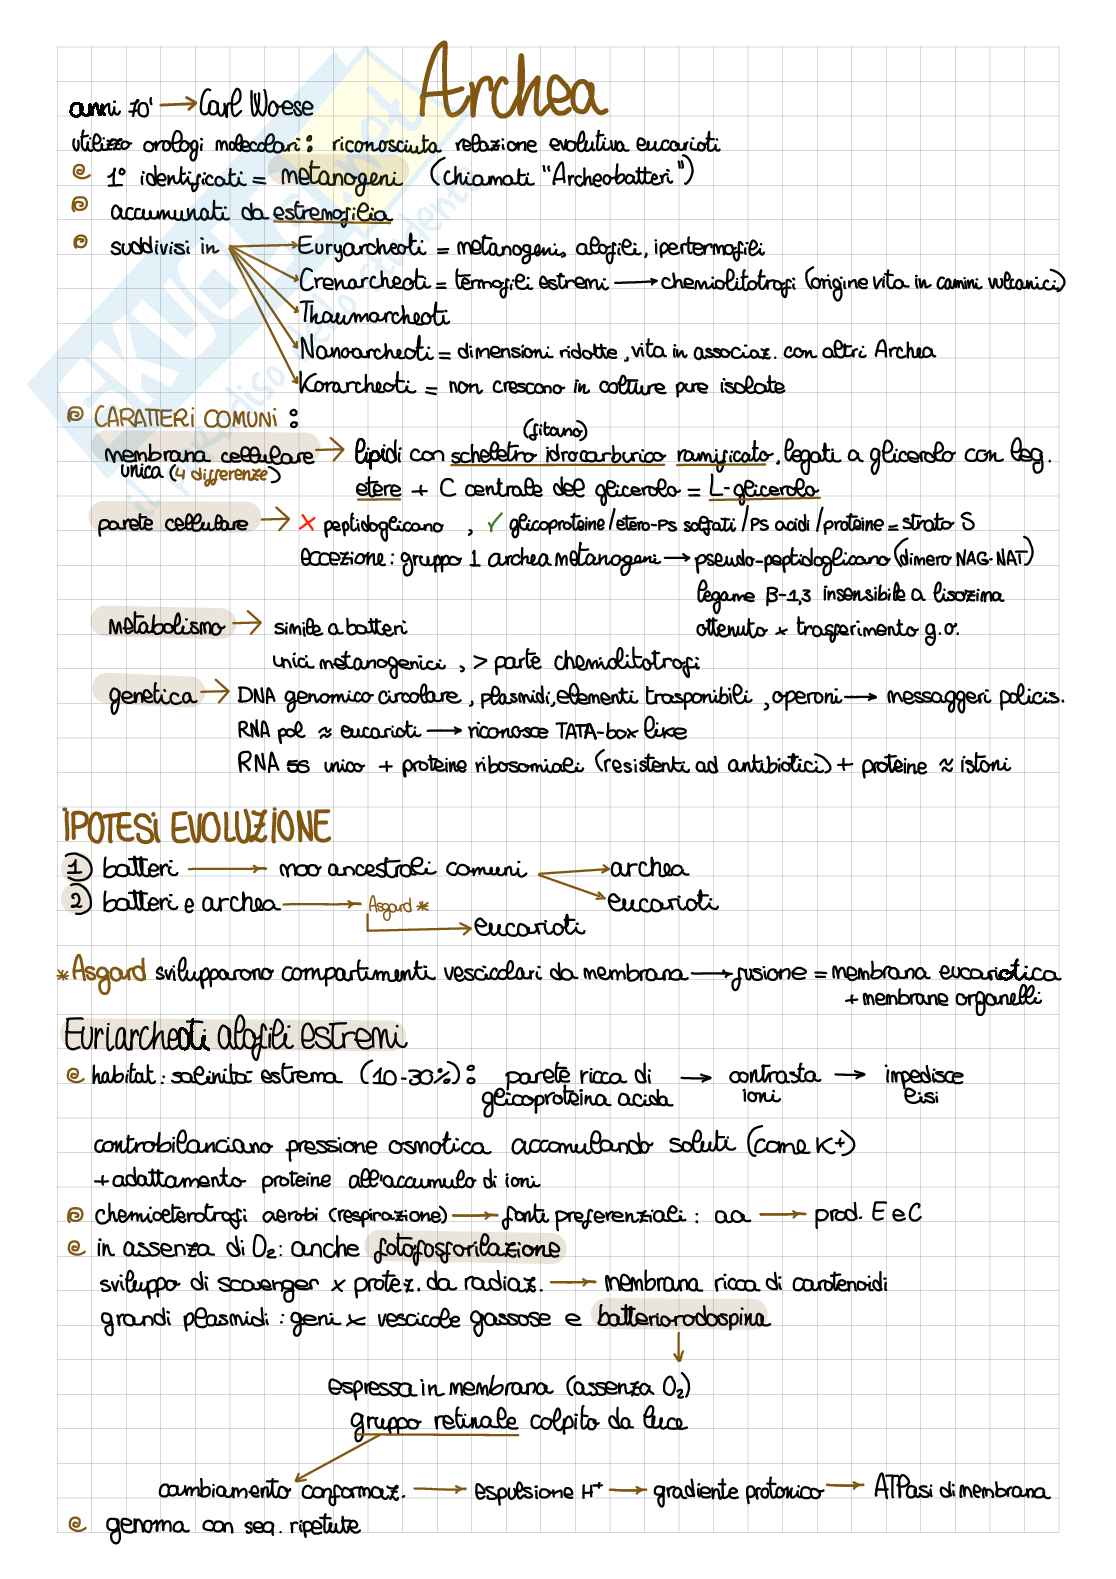 Archea
anni 70' → Carl Woese
utilizzo orologi molecolari: riconosciuta relazione evolutiva eucarioti
1° identificati = metanogeni (chiamati "Archeobatteri")
accumunati da estremofilia
suddivisi in → Euryarcheoti = metanogeni, alofili, ipertermofili
Crenarcheoti = termofili estremi → chemiolitotrofi (origine vita in camini vulcanici)
Thaumarcheoti
Nanoarcheoti = dimensioni ridotte, vita in associaz. con altri Archea
Korarcheoti = non crescono in colture pure isolate
CARATTERI COMUNI:
(fitano)
membrana cellulare → lipidi con scheletro idrocarburico ramificato, legati a glicerolo con leg.
unica (4 differenze)
etere + C centrale del glicerolo = L-glicerolo
parete cellulare → ✗ peptidoglicano, ✓ glicoproteine/etero-Ps solfati/Ps acidi/proteine = strato S
eccezione: gruppo 1 archea metanogeni → pseudo-peptidoglicano (dimero NAG-NAT)
legame β-1,3 insensibile a lisozima
metabolismo → simile a batteri
ottenuto x trasferimento g.o.
unici metanogenici, > parte chemiolitotrofi
genetica → DNA genomico circolare, plasmidi, elementi trasponibili, operoni → messaggeri policis.
RNA pol ≈ eucarioti → riconosce TATA-box like
RNA 5S unico + proteine ribosomiali (resistenti ad antibiotici) + proteine ≈ istoni
IPOTESI EVOLUZIONE
1 batteri → moo ancestrali comuni → archea
eucarioti
2 batteri e archea → Asgard *
→ eucarioti
* Asgard svilupparono compartimenti vescicolari da membrana → fusione = membrana eucariotica
+ membrane organelli
Euriarcheoti alofili estremi
habitat: salinità estrema (10-30%): parete ricca di → contrasta → impedisce
glicoproteina acida ioni lisi
controbilanciano pressione osmotica accomulando soluti (come K+)
+ adattamento proteine all'accumulo di ioni
chemioeterotrofi aerobi (respirazione) → fonti preferenziali: aa → prod. E e C
in assenza di O₂: anche fotofosforilazione
sviluppo di scavenger x protez. da radiaz. → membrana ricca di carotenoidi
grandi plasmidi: geni x vescicole gassose e batteriorodospina
espressa in membrana (assenza O₂)
gruppo retinale colpito da luce
cambiamento conformaz. → espulsione H⁺ → gradiente protonico → ATPasi di membrana
genoma con seq. ripetute